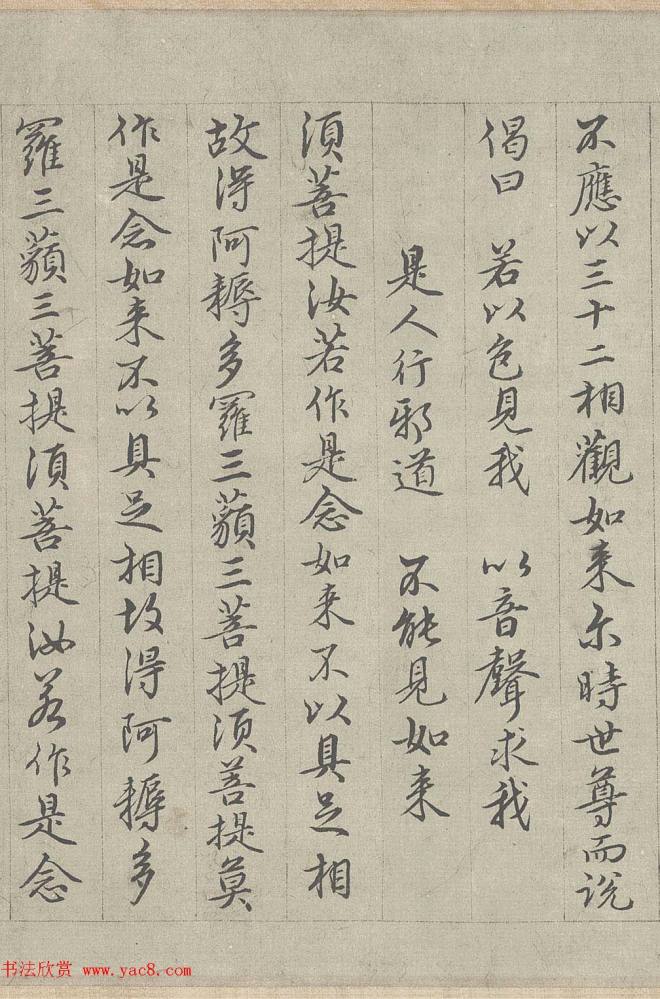 不應以三十二相觀如来尓時世尊而説
偈曰 若以色見我 以音聲求我
是人行邪道 不能見如来
須菩提汝若作是念如来不以具足相
故得阿耨多羅三藐三菩提須菩提莫
作是念如来不以具足相故得阿耨多
羅三藐三菩提須菩提汝若作是念
书法欣赏 www.yac8.com